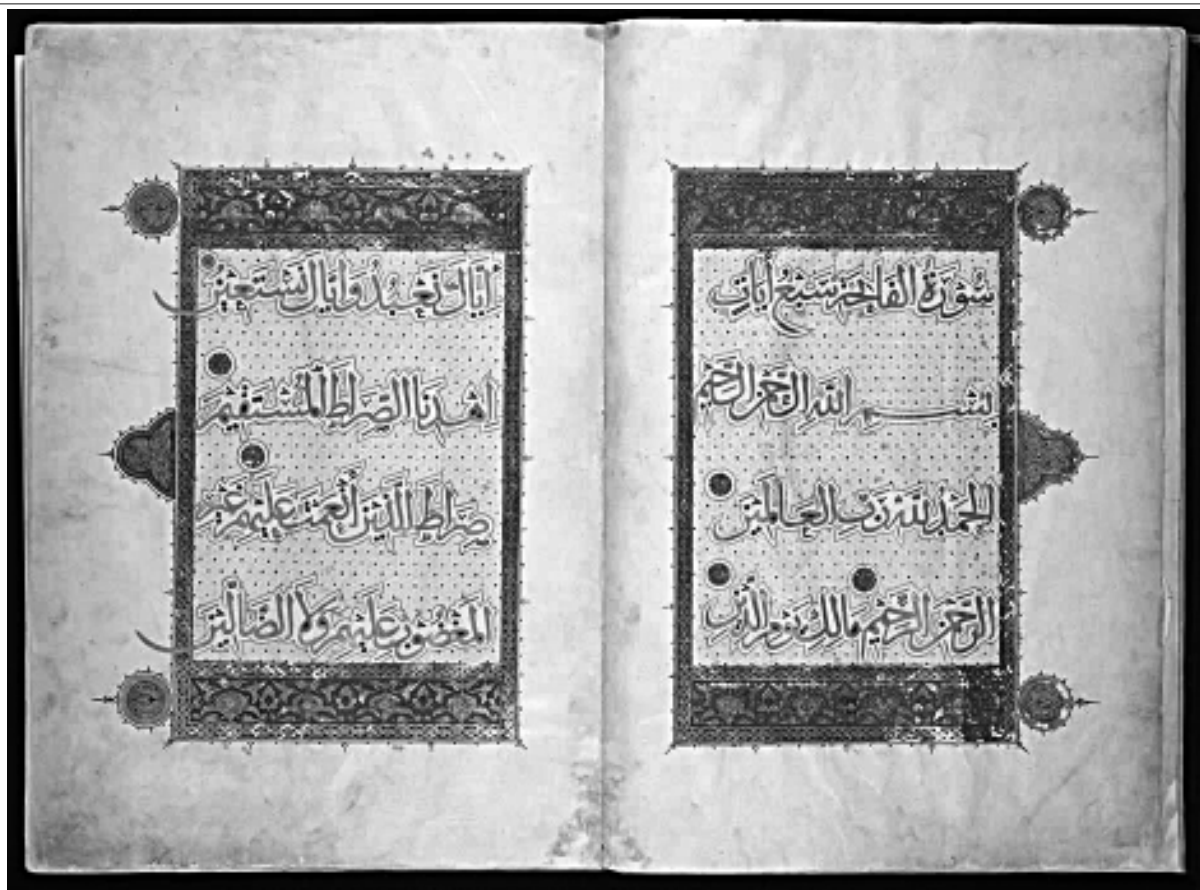 سُورَةُ الفَاتِحَةِ سَبْعُ أيَاتٍ
بِسْمِ اللهِ الرَّحْمٰنِ الرَّحِيمِ
الحَمْدُ لِلّٰهِ رَبِّ العَالَمِينَ
الرَّحْمٰنِ الرَّحِيمِ مَالِكِ يَوْمِ الدِّينِ
اِيَّاكَ نَعْبُدُ وَاِيَّاكَ نَسْتَعِينُ
اهْدِنَا الصِّرَاطَ الْمُسْتَقِيمَ
صِرَاطَ الَّذِينَ أَنْعَمْتَ عَلَيْهِمْ غَيْرِ
المَغْضُوبِ عَلَيْهِمْ وَلَا الضَّالِّينَ